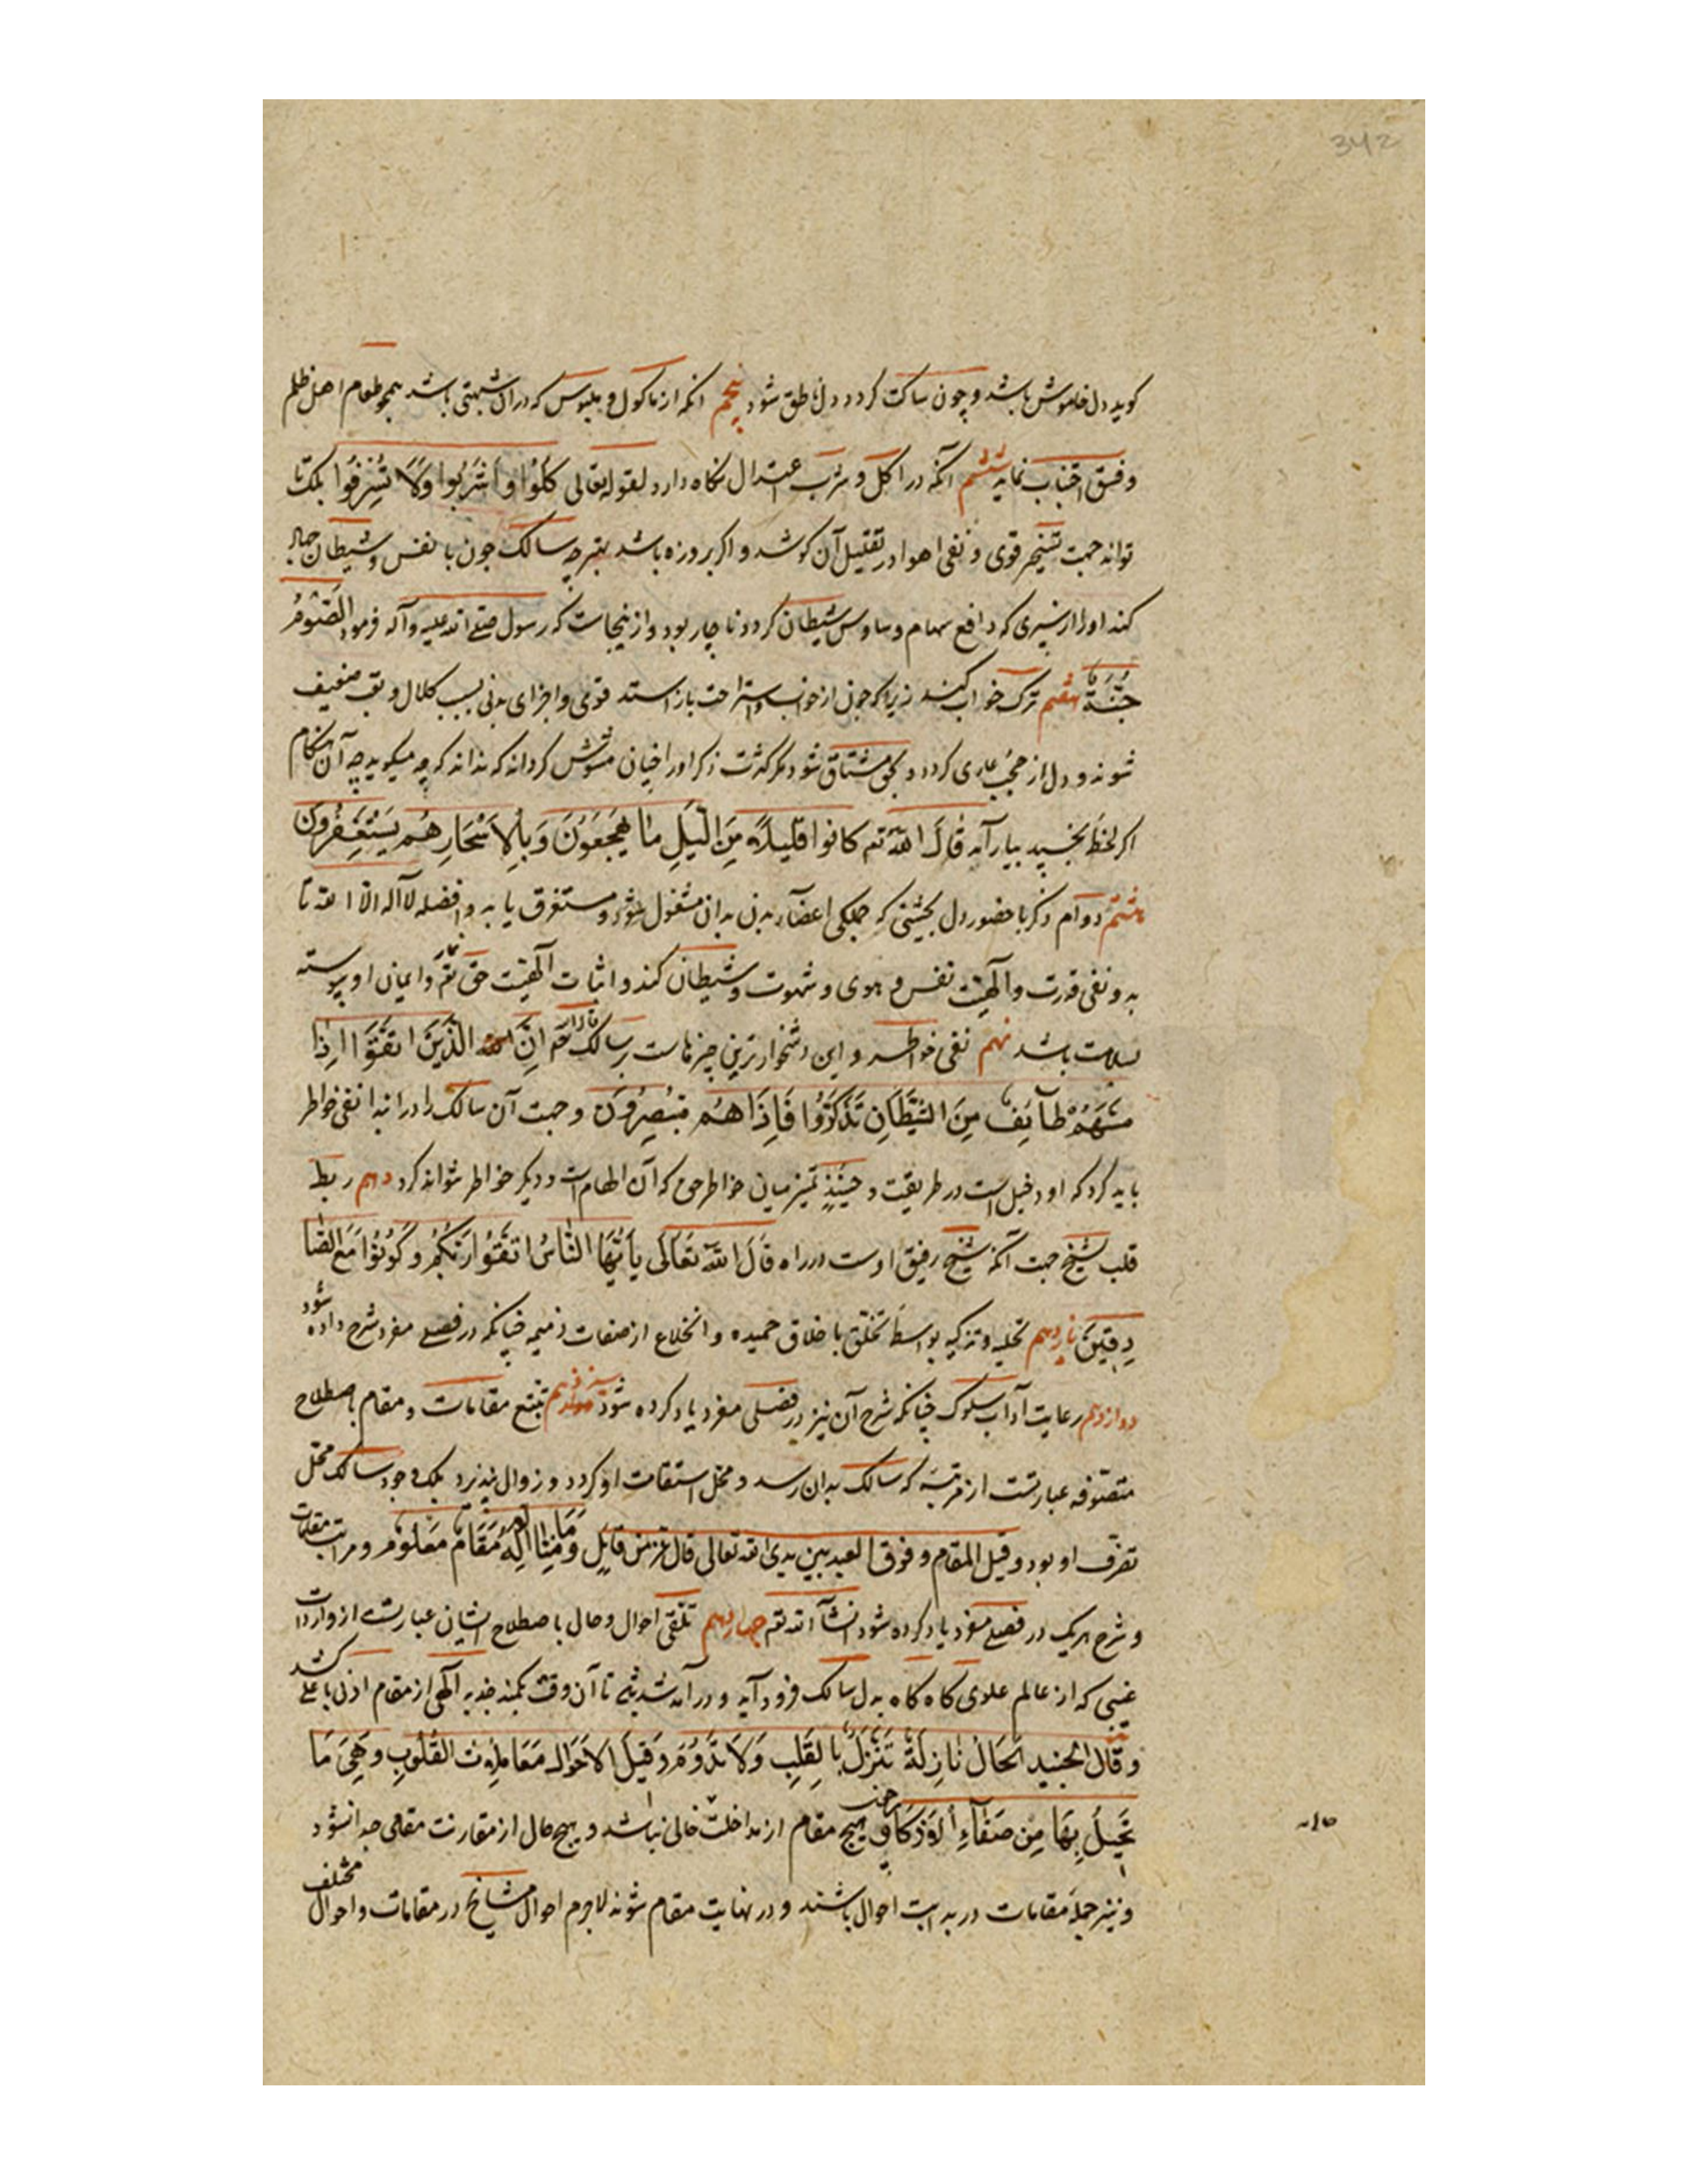 342
کوید دل خاموش باشد و چون ساکت کردد دل ناطق شود پنجم آنکه از ماکول و ملبوس که در آن شبهتی باشد همچو طعام اهل ظلم
و فسق اجتناب نماید ششم آنکه در اکل و شرب اعتدال نکاه دارد لقوله تعالی کُلُوا وَاشْرَبُوا وَلَا تُسْرِفُوا بلک تا
تواند جهت تسخیر قوی و نفی اهوا در تقلیل آن کوشد و اکر بروزه باشد بهتر چه سالک چون با نفس و شیطان جهاد
کند او را از سپری که دافع سهام وساوس شیطان کردد ناچار بود و ازینجاست که رسول صلی الله علیه وآله فرمود الصَّوْمُ
جُنَّةٌ هفتم ترک خواب کند زیرا که چون از خواب و استراحت باز استد قوی و اجزای بدنی بسبب کلال و تعب ضعیف
شوند و دل از حجب عاری کردد و بحق مشتاق شود مکر کثرت ذکر او را چنان مشوش کرداند که نداند که چه میکوید چه آن هنکام
اکر لحظه بخسپد بیارآمد قَالَ اللّٰهُ تع کانوا قَلِیلًا مِنَ الَّیْلِ مَا یَهْجَعُوْنَ وَبِالْاَسْحَارِ هُمْ یَسْتَغْفِرُونَ
هشتم دوام ذکر با حضور دل بحیثیتی که جملکی اعضاء بدن بدان مشغول شود و مستغرق یابد و افضله لا آله الا الله تا
بدو نفی قدرت و آلهیت نفس و هوی و شهوت و شیطان کند و اثبات آلهیت حق تع نماید و ایمان او پیوسته
بسلامت باشد نهم نفی خواطر و این دشخوارترین چیزهاست بر سالک قال الله تع اِنَّ الَّذِیْنَ اتَّقَوْا اِذَا
مَسَّهُمْ طَآئِفٌ مِنَ الشَّیْطَانِ تَذَکَّرُوْا فَاِذَا هُمْ مُبْصِرُونَ و جهت آن سالک را در ابتدا نفی خواطر
باید کرد که او دخیل است در طریقت و حینئذٍ تمیز میان خواطر حق که آن الهام است و دیکر خواطر نتواند کرد دهم ربط
قلب شیخ جهت آنکه شیخ رفیق اوست در راه قَالَ اللّٰهُ تَعَالَی یَا اَیُّهَا النَّاسُ اتَّقُوْا رَبَّکُمْ وَکُوْنُوْا مَعَ الصَّا
دِقِیْنَ یازدهم تحلیه و تزکیه بواسطه تخلق باخلاق حمیده و انخلاع از صفات ذمیمه چنانکه در فصلی مفرد شرح داده شود
دوازدهم رعایت آداب سلوک چنانکه شرح آن نیز در فصلی مفرد یاد کرده شود سیزدهم تتبع مقامات و مقام باصطلاح
متصوفه عبارتست از مرتبه که سالک بدان رسد و محل استقامت او کردد و زوال نپذیرد بلک وجود سالک محل
تصرف او بود و قیل المقام وقوف العبد بین یدی الله تعالی قال عز من قایل وَمَا مِنَّا اِلَّا لَهُ مَقَامٌ مَعْلُومٌ و مراتب مقامات
و شرح هریک در فصلی مفرد یاد کرده شود انشآ الله تع چهاردهم تلقی احوال و حال باصطلاح ایشان عبارتست از واردات
غیبی که از عالم علوی کاه کاه بدل سالک فرود آید و در آمد شد بی تا آن وقت بکمند جذبه آلهی از مقام ادنی باعلی کشد
و قَالَ الجنید الحَالُ نَازِلَةٌ تَنْزِلُ بِالْقَلْبِ وَلَا تَدُوْمُ وَ قِیْلَ الاَحْوَالُ مَعَامَلَاتُ القُلُوْبِ وَ هِیَ مَا
یَحِلُّ بِهَا مِن صَفَآءِ الاَذْکَارِ و هیچ مقام از مداخلت خالی نباشد و هیچ حال از مقارنت مقامی جدا نشود
و نیز جملة مقامات در بدایت احوال باشند و در نهایت مقام شوند لاجرم احوال مشایخ در مقامات و احوال مختلف